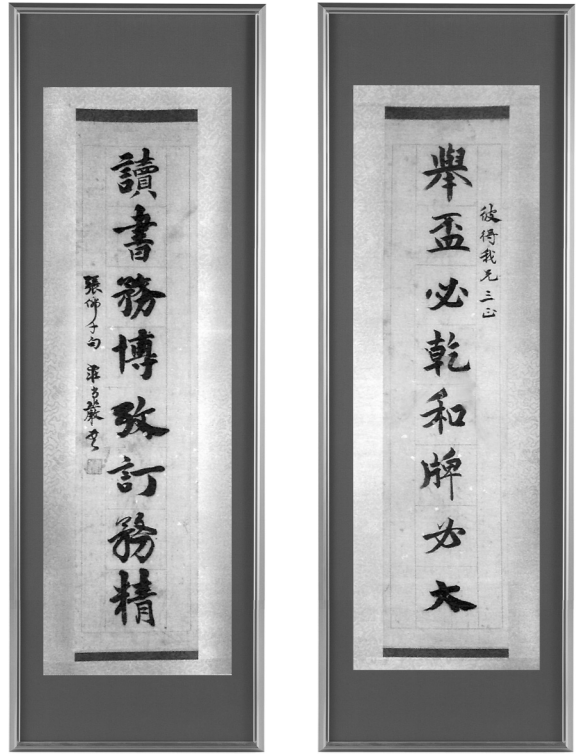 彼得我兄三正
舉盃必乾和牌必大
讀書務博攷訂務精
張佛千句 莊尚嚴書